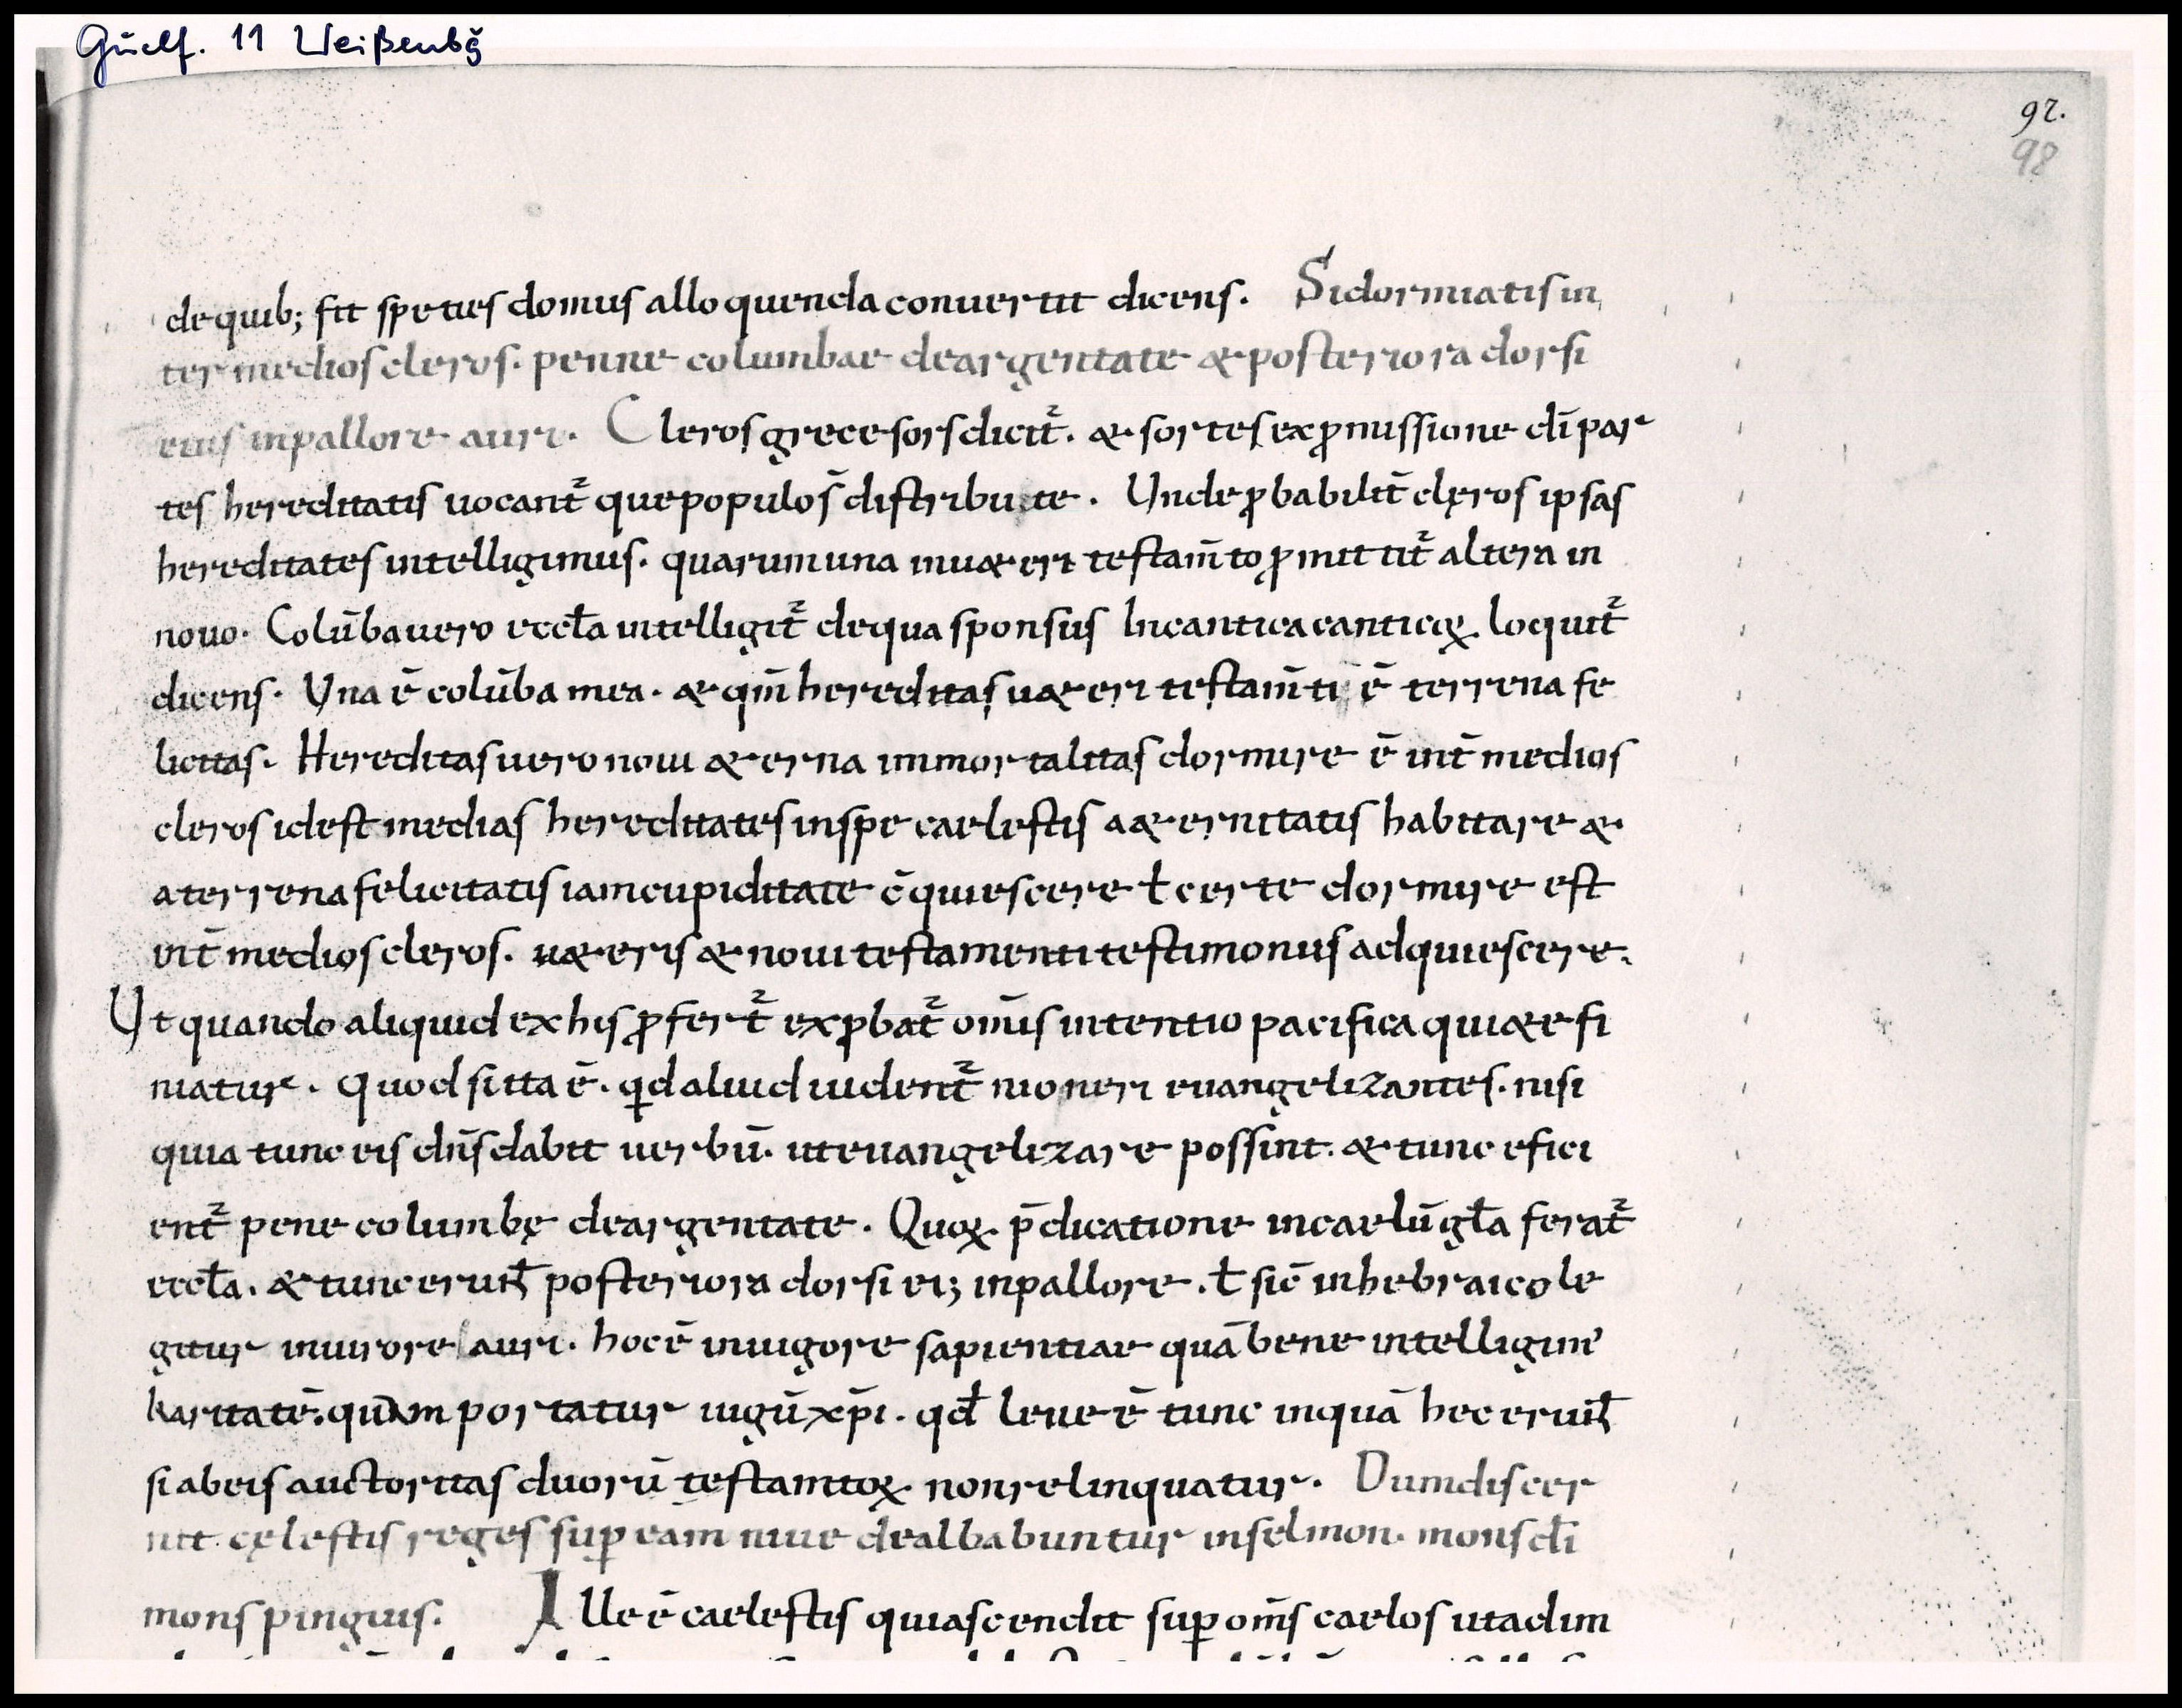 Guelf. 11 Weißenbg̃
92.
98
de quib; fit speties domus alloquenda conuertit dicens. Si dormiatis in
ter medios cleros. penne columbae deargentate & posteriora dorsi
eius in pallore auri. Cleros grece sors dicit̃. & sortes ex ꝓmissione dī par
tes hereditatis uocant̃ que populos̄ distribute. Unde ꝓbabilit̄ clęros ipsas
hereditates intelligimus. quarum una in u&eri testam̄to ꝓmittit̃ altera in
nouo. Colūba uero eccła intelligit̃ de qua sponsus In cantica canticoꝝ loquit̃
dicens. Una ē colūba mea. & qm̄ hereditas u&eri testam̄ti ē terrena fe
licitas. Hereditas uero noui &erna immortalitas dormire ē int̄ medios
cleros id est medias hereditates in spe caelestis a&ernitatis habitare &
a terrena felicitatis iam cupiditate c̄quiescere ł certe dormire est
int̄ medios cleros. u&eris & noui testamenti testimoniis adquiescere.
Ut quando aliquid ex his ꝓfert̃ exꝓbat̃ om̄is intentio pacifica qui&e fi
niatur. Quod si ita ē. qd aliud uident̃ moneri euangelizantes. nisi
quia tunc eis dn̄s dabit uerbū. ut euangelizare possint. & tunc efici
ent̃ pene columbę deargentate. Quoꝝ p̄dicatione in caelū gła ferat̃
eccła. & tunc erunt̃ posteriora dorsi ei; in pallore. ł sic̄ in hebraico le
gitur in uirore auri. hoc ē in uigore sapientiae quā bene intelligim᾽
karitatē. quam portatur iugū xp̄i. qd̄ leue ē tunc inquā hec erunt̃
si ab eis auctoritas duorū testamtoꝝ non relinquatur. Dum discer
nit cęlestis reges suꝑ eam niue dealbabuntur in selmon. mons dī
mons pinguis. Ille ē caelestis qui ascendit suꝑ om̄s caelos ut adim